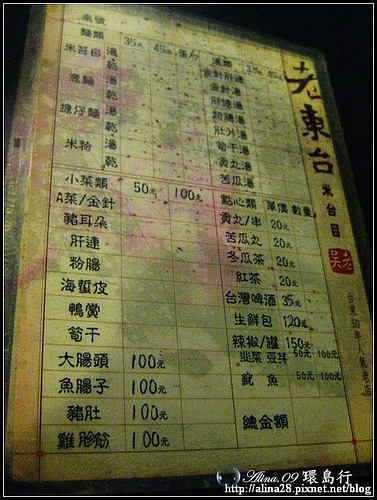 桌號
麵類 35元 45元
米苔目 湯
乾
湯
乾
擔仔麵 湯
乾
米粉 湯
乾
小菜類 50元 100元
A菜/金針
豬耳朵
肝連
粉腸
海蜇皮
鴨賞
筍干
大腸頭 100元
魚腸子 100元
豬肚 100元
雞胗筋 100元
湯類 35元 45元
金針肝連
金針湯
肝連湯
粉腸湯
肚片湯
筍干湯
貢丸湯
苦瓜湯
點心類 單價 數量
貢丸/串 20元
苦瓜丸 20元
冬瓜茶 20元
紅茶 20元
台灣啤酒 35元
生鮮包 120元
辣椒/罐 150元
韮菜 豆芽 50元 100元
魷魚 50元 100元
總金額
老東台
米台目
老吳
台東50年人氣老店
Alina.09 環島行
http://alina28.pixnet.net/blog